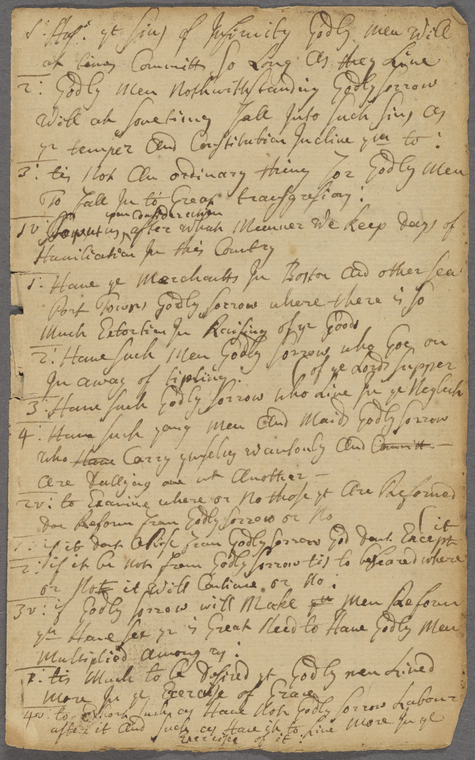 1: That ye sins of Infirmity Godly men Will
at times Committ so Long As they Live
2: Godly Men Nothwithstanding Godly sorrow
Will at sometimes fall Into such sins as
yr temper And Constitution Incline ym to:
3: tis Not An ordinary thing for Godly Men
To fall In to Great transgresions:
us after What Manner We keep days of
Humiliation In this Country
1: Have ye Merchants In Boston And other Sea
Port Towns Godly sorrow where there is so
Much Extortion In Raising of yr Goods
2: Have such Men Godly sorrow who Goe on
In a way of tipling. of ye Lords supper
3: Have such Godly sorrow who Live In ye Neglect
4: Have such yong Men And Maids Godly sorrow
who Have Carry ymselves Wantonly And Committ
Are Dallying one wt Another
2v: to Examine where or No those yt Are Reformed
Doe Reform from Godly sorrow or No
1: if it dont Arise from Godly sorrow God dont Except it
2: if it be Not from Godly sorrow tis to be feared where
or Not it Will Continue or No:
3v: if Godly sorrow will Make Men Reform
yn Have See yr is Great Need to Have Godly Men
Multiplied Among us:
1: tis Much to be Desired yt Godly men Lived
More In ye Exercise of Grace
4v: to Exhort such as Have Not Godly sorrow Labour
after it And such as Have it to Live More In ye
exercise of it: